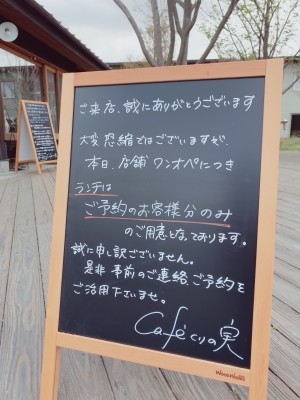 ご来店、誠にありがとうございます
大変 恐縮ではございますが、
本日、店舗 ワンオペにつき
ランチは
ご予約のお客様分のみ
のご用意となっております。
誠に申し訳ございません。
是非 事前のご連絡、ご予約を
ご活用下さいませ。
Café くりの実